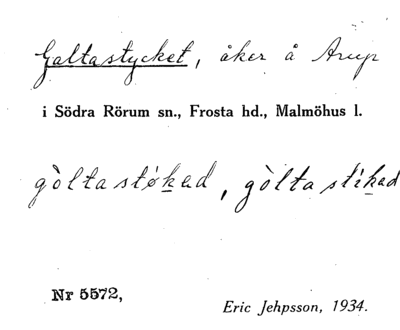 Galtastycket, åker å Arup
i Södra Rörum sn., Frosta hd., Malmöhus l.
gòltastøkad, gòltastìkad
Nr 5572,
Eric Jehpsson, 1934.